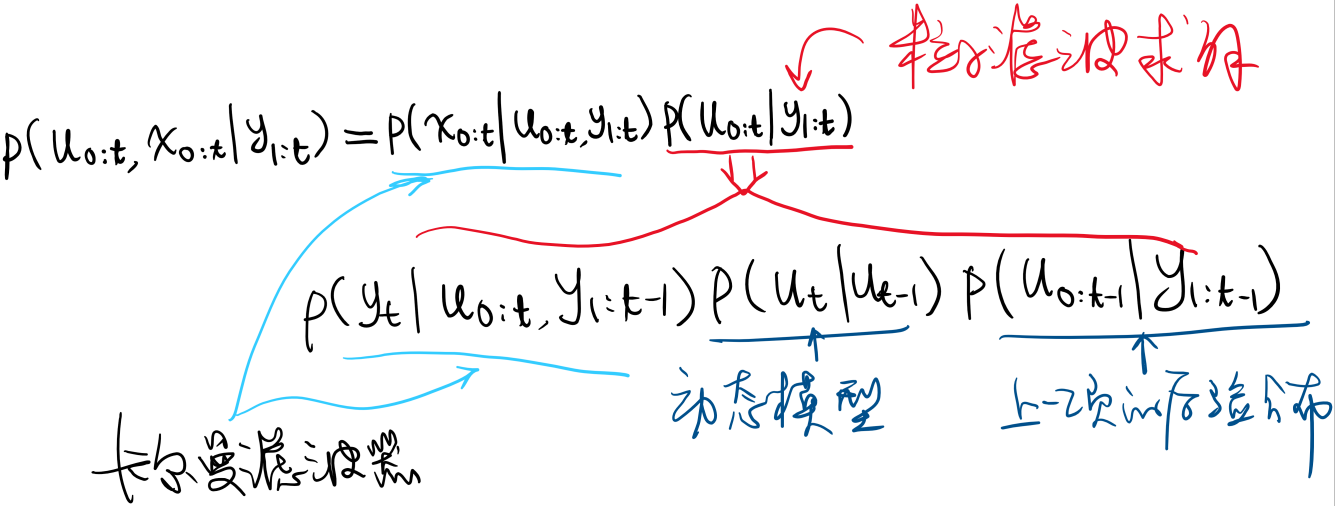 粒子滤波求解
p(u₀:t, x₀:t | y₁:t) = p(x₀:t | u₀:t, y₁:t) p(u₀:t | y₁:t)
p(yt | u₀:t, y₁:t-1) p(ut | ut-1) p(u₀:t-1 | y₁:t-1)
动态模型 上一项的后验分布
卡尔曼滤波器